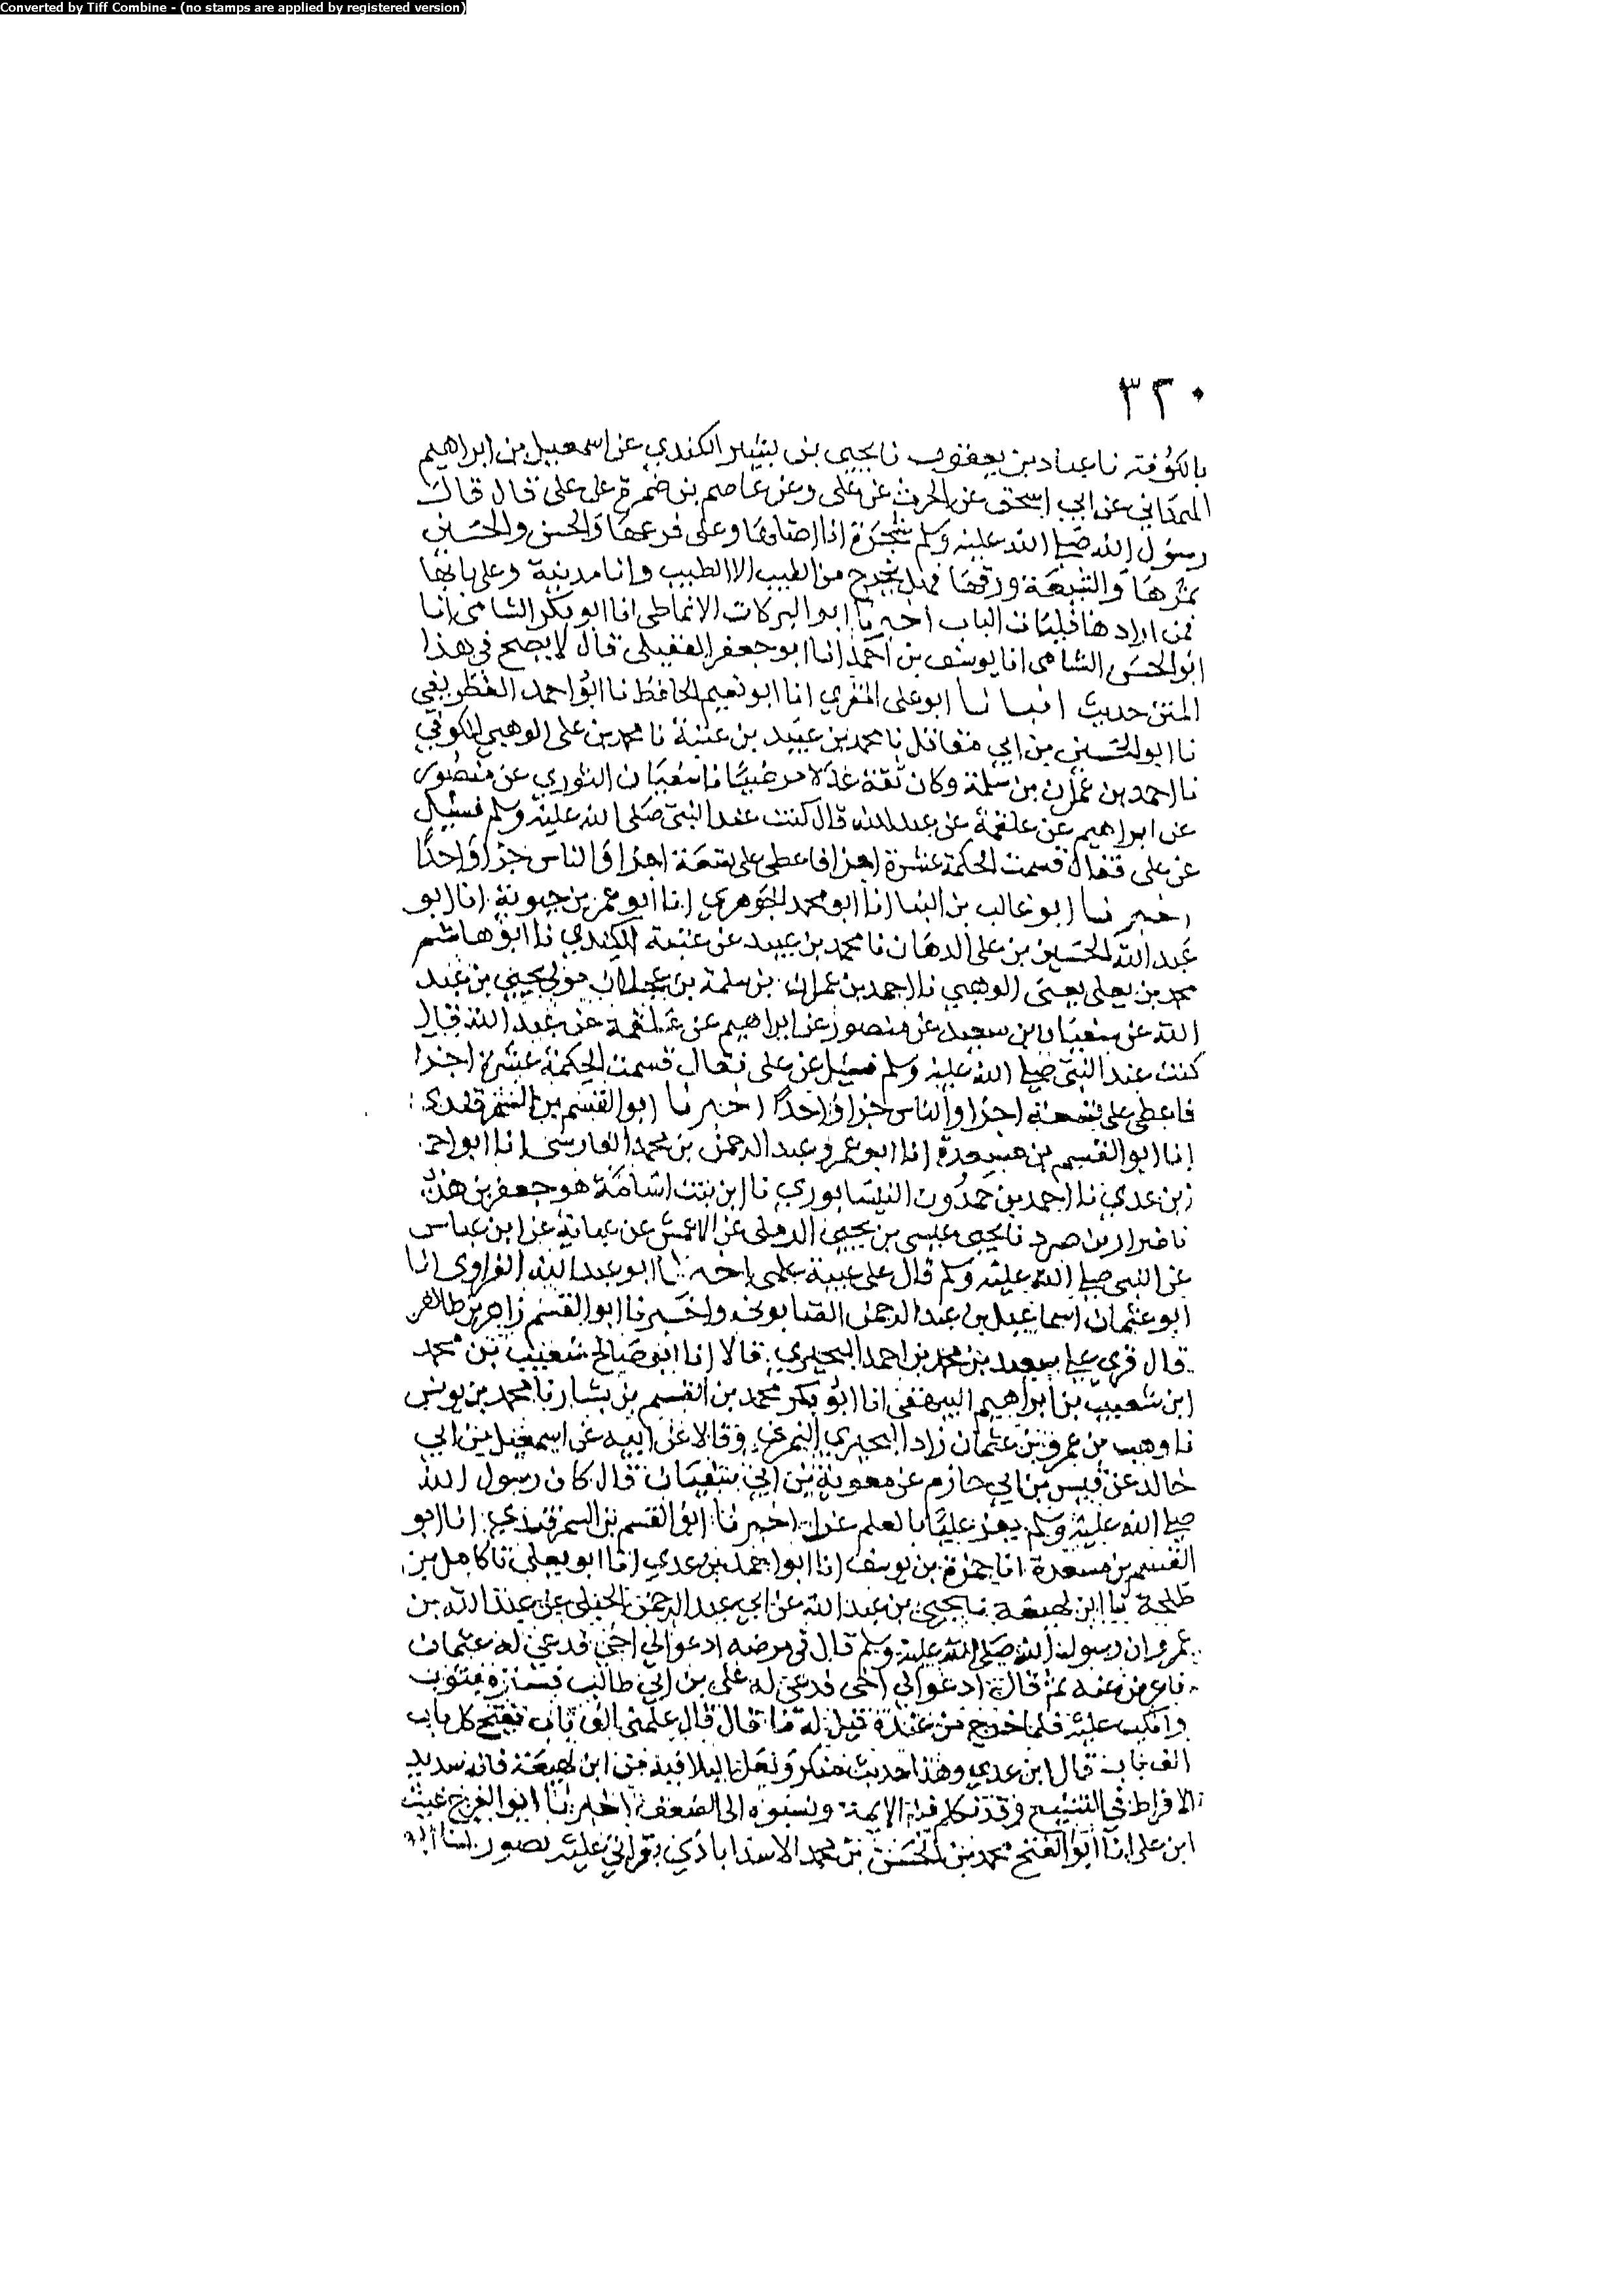 Converted by Tiff Combine - (no stamps are applied by registered version)
٣٢٠
بالكوفة نا عباد بن يعقوب نا يحيى بن بشير الكندي عن اسمعيل بن ابراهيم
الهمداني عن ابي اسحق عن الحرث عن علي وعن عاصم بن ضمرة عن علي قال قال
رسول الله صلى الله عليه وسلم شجرة انا اصلها وعلى فرعها والحسن والحسين
ثمرها والشيعة ورقها فهل يخرج من الطيب الا الطيب وانا مدينة وعلى بابها
فمن ارادها فليات الباب اخبرنا ابو البركات الانماطي انا ابو بكر الشامي انا
ابو الحسن الشامي انا يوسف بن احمد انا ابو جعفر العقيلي قال لا يصح في هذا
المتن حديث انبانا ابو على المقري انا ابو نعيم الحافظ نا ابو احمد الغطريفي
نا ابو الحسين بن ابي مقاتل نا محمد بن عبيد بن عتبة نا محمد بن على الوهبي الكوفي
نا احمد بن عمران بن سلمة وكان ثقة عدلا مرضيا نا سفيان الثوري عن منصور
عن ابراهيم عن علقمة عن عبد الله قال كنت عند النبي صلى الله عليه وسلم فسئل
عن على فقال قسمت الحكمة عشرة اجزا فاعطى على تسعة اجزا والناس جزا واحدا
اخبرنا ابو غالب بن البنا انا ابو محمد الجوهري انا ابو عمر بن حيوية انا ابو
عبد الله الحسين بن على الدهان نا محمد بن عبيد عن عتبة الكندي نا ابو هاشم
محمد بن يعلى يعنى الوهبي نا احمد بن عمران بن سلمة بن عجلان مولى يحيى بن عبد
الله عن سفيان بن سعيد عن منصور عن ابراهيم عن علقمة عن عبد الله قال
كنت عند النبي صلى الله عليه وسلم فسئل عن على فقال قسمت الحكمة عشرة اجزا
فاعطى على تسعة اجزا والناس جزا واحدا اخبرنا ابو القسم بن السمرقندي
انا ابو القسم بن مسعدة انا ابو عمرو عبد الرحمن بن محمد الفارسي انا ابو احمد
بن عدي نا احمد بن حمدون النيسابوري نا ابن بنت اسامة هو جعفر بن هذيل
نا ضرار بن صرد نا يحيى عيسى بن يحيى الرملى عن الاعمش عن عباية عن ابن عباس
عن النبي صلى الله عليه وسلم قال على عيبة علمي اخبرنا ابو عبد الله الفراوي انا
ابو عثمان اسماعيل بن عبد الرحمن الصابوني واخبرنا ابو القسم زاهر بن طاهر
قال قري على سعيد بن محمد بن احمد البحيري قالا انا ابو صالح شعيب بن محمد
ابن شعيب بن ابراهيم البيهقي انا ابو بكر محمد بن القسم بن بشار نا محمد بن يونس
نا وهب بن عمرو بن عثمان زاد البحيري النمري وقالا عن ابيه عن اسمعيل بن ابي
خالد عن قيس بن ابي حازم عن معوية بن ابي سفيان قال كان رسول الله
صلى الله عليه وسلم يغر عليا بالعلم غرا اخبرنا ابو القسم بن السمرقندي انا ابو
القسم بن مسعدة انا حمزة بن يوسف انا ابو احمد بن عدي انا ابو يعلى نا كامل بن
طلحة نا ابن لهيعة نا يحيى بن عبد الله عن ابي عبد الرحمن الحبلي عن عبد الله بن
عمرو ان رسول الله صلى الله عليه وسلم قال في مرضه ادعوا لي اخي فدعي له عثمان
فاعرض عنه ثم قال ادعوا لي اخي فدعي له على بن ابي طالب فستره بثوب
وانكب عليه فلما خرج من عنده قيل له ما قال قال علمني الف باب يفتح كل باب
الف باب قال ابن عدي وهذا حديث منكر ولعل البلا فيه من ابن لهيعة فانه شديد
الافراط في التشيع وقد تكلم فيه الايمة ونسبوه الى الضعف اخبرنا ابو الفرج غيث
ابن على انا ابو الفتح محمد بن الحسن بن محمد الاسداباذي بقراتي عليه بصور